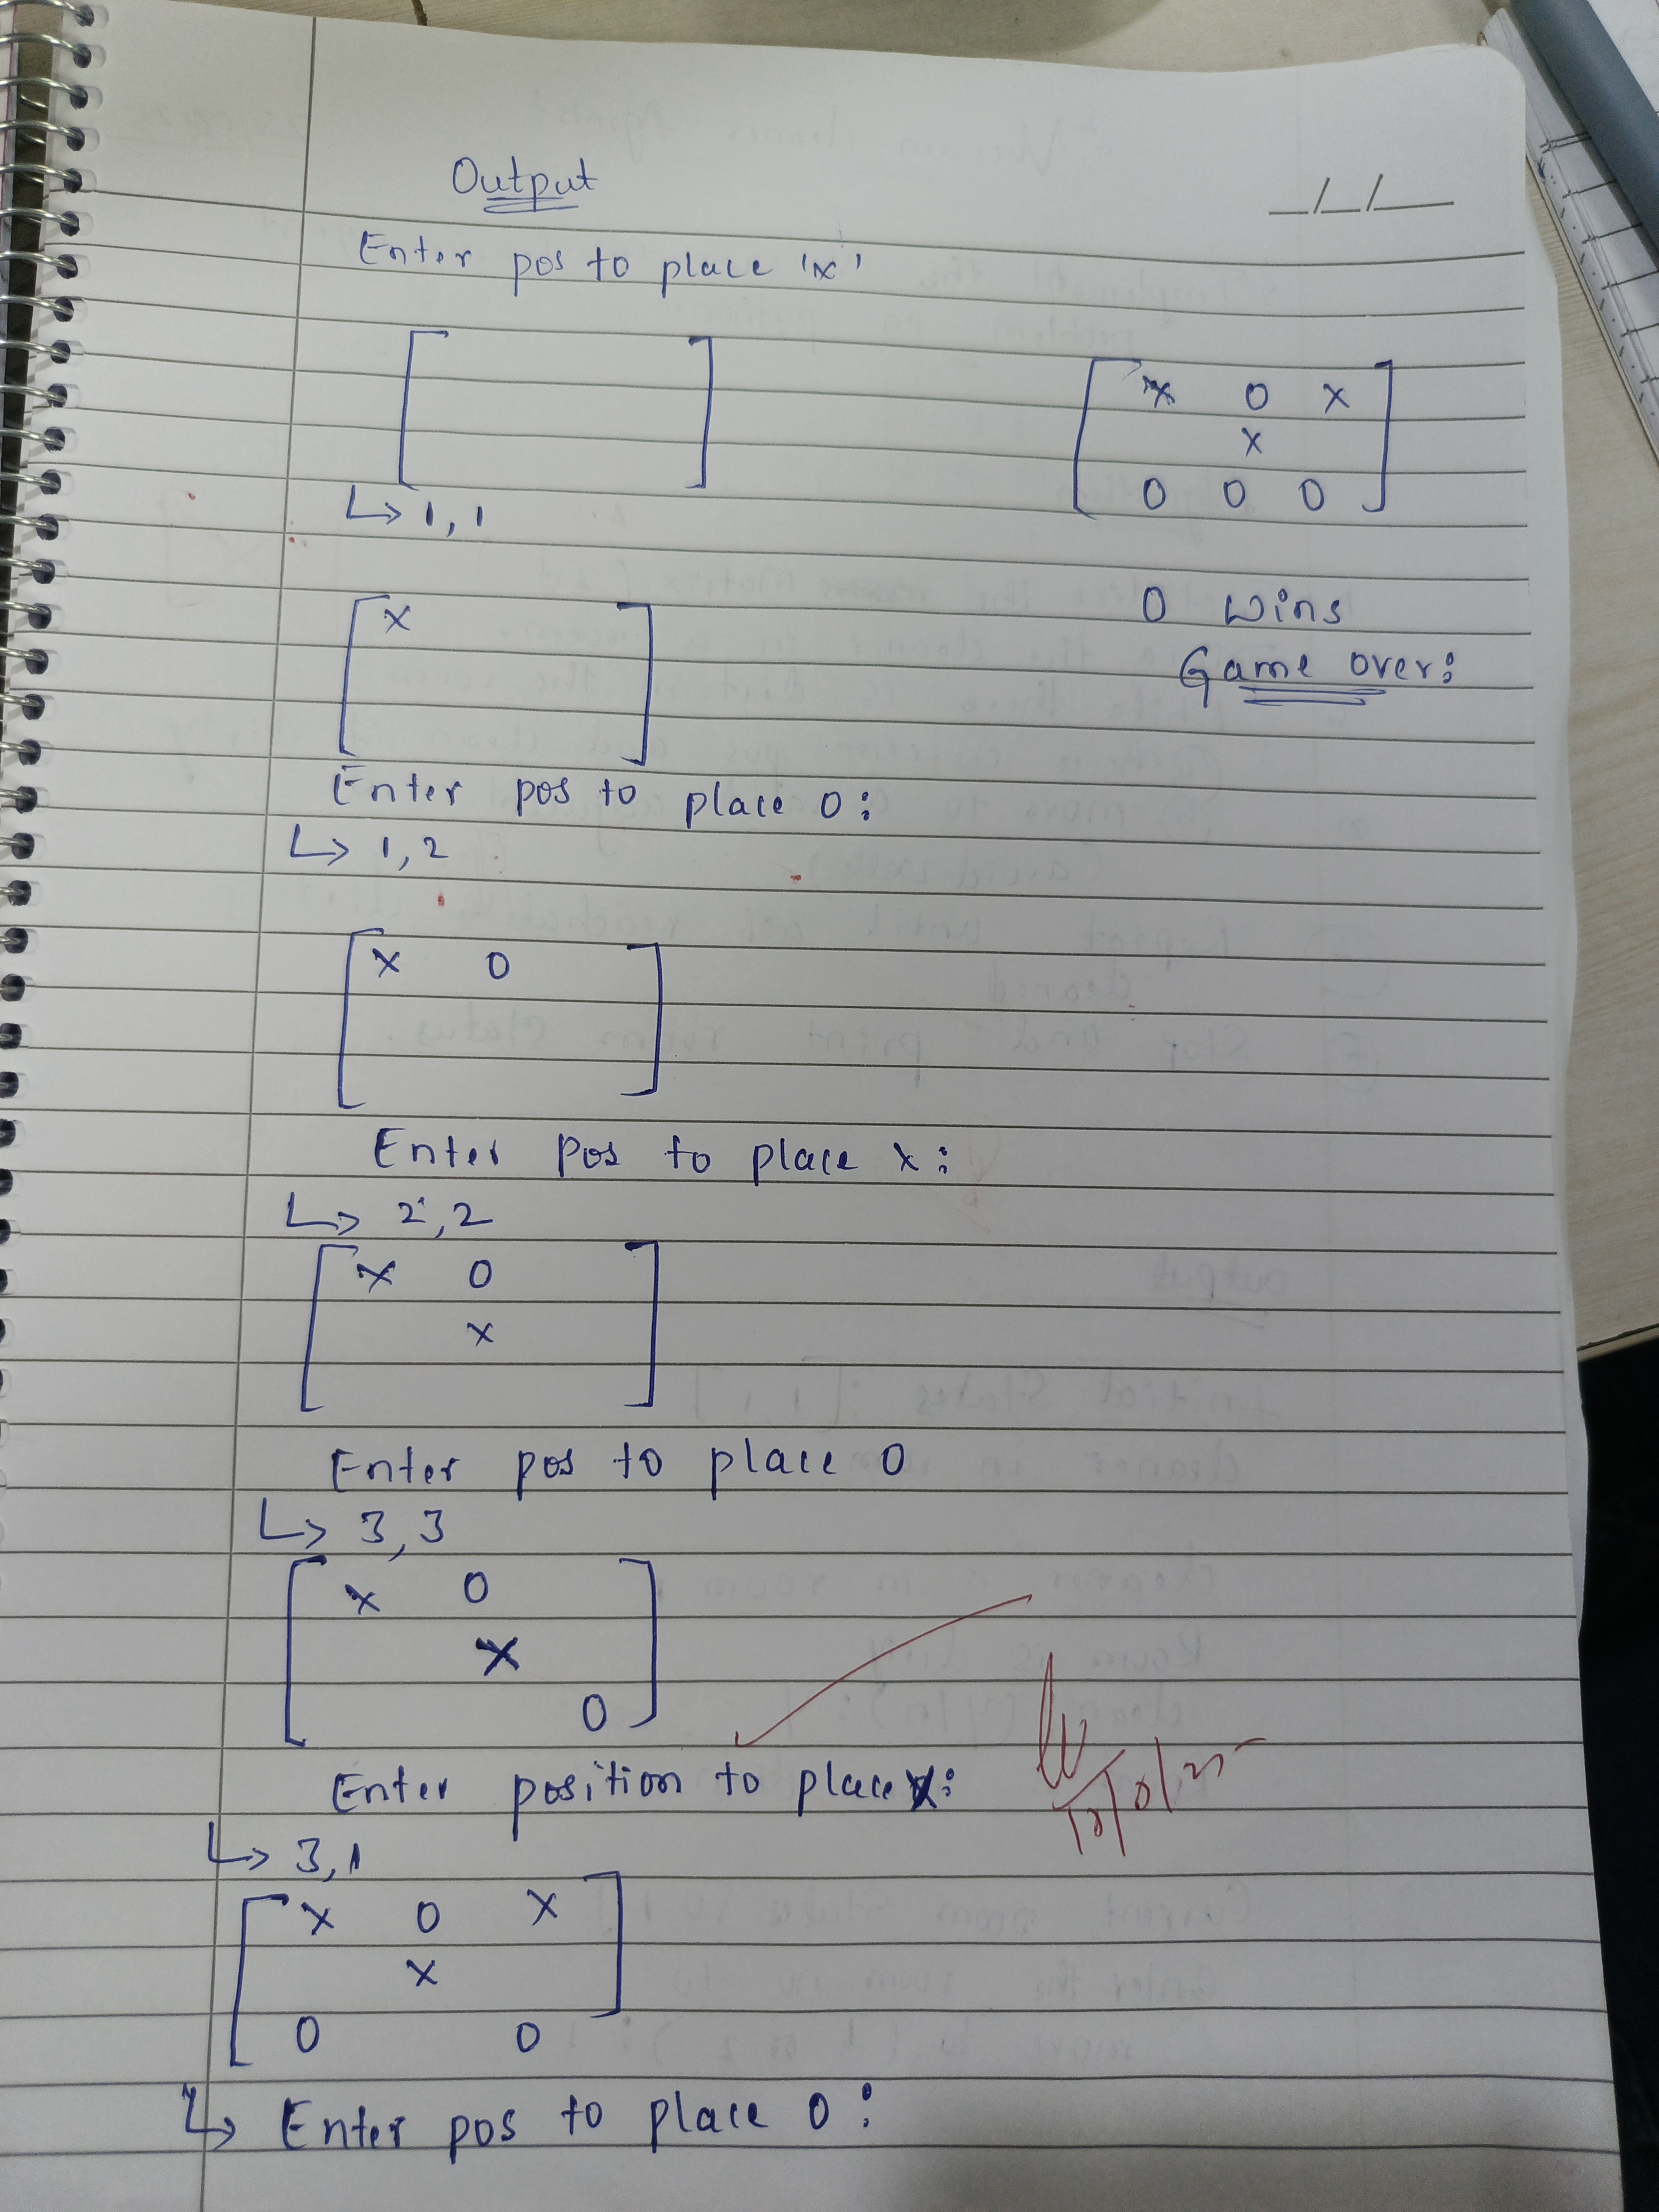 Output
_/_/__
Enter pos to place 'x'
[ ]
↳ 1, 1
[ x ]
Enter pos to place 0:
↳ 1, 2
[ x 0 ]
Enter Pos to place x:
↳ 2, 2
[ x 0
x ]
Enter pos to place 0
↳ 3, 3
[ x 0
x
0 ]
Enter position to place x:
↳ 3, 1
[ x 0 x
x
0 0 ]
↳ Enter pos to place 0:
[ x 0 x
x
0 0 0 ]
0 wins
Game over: